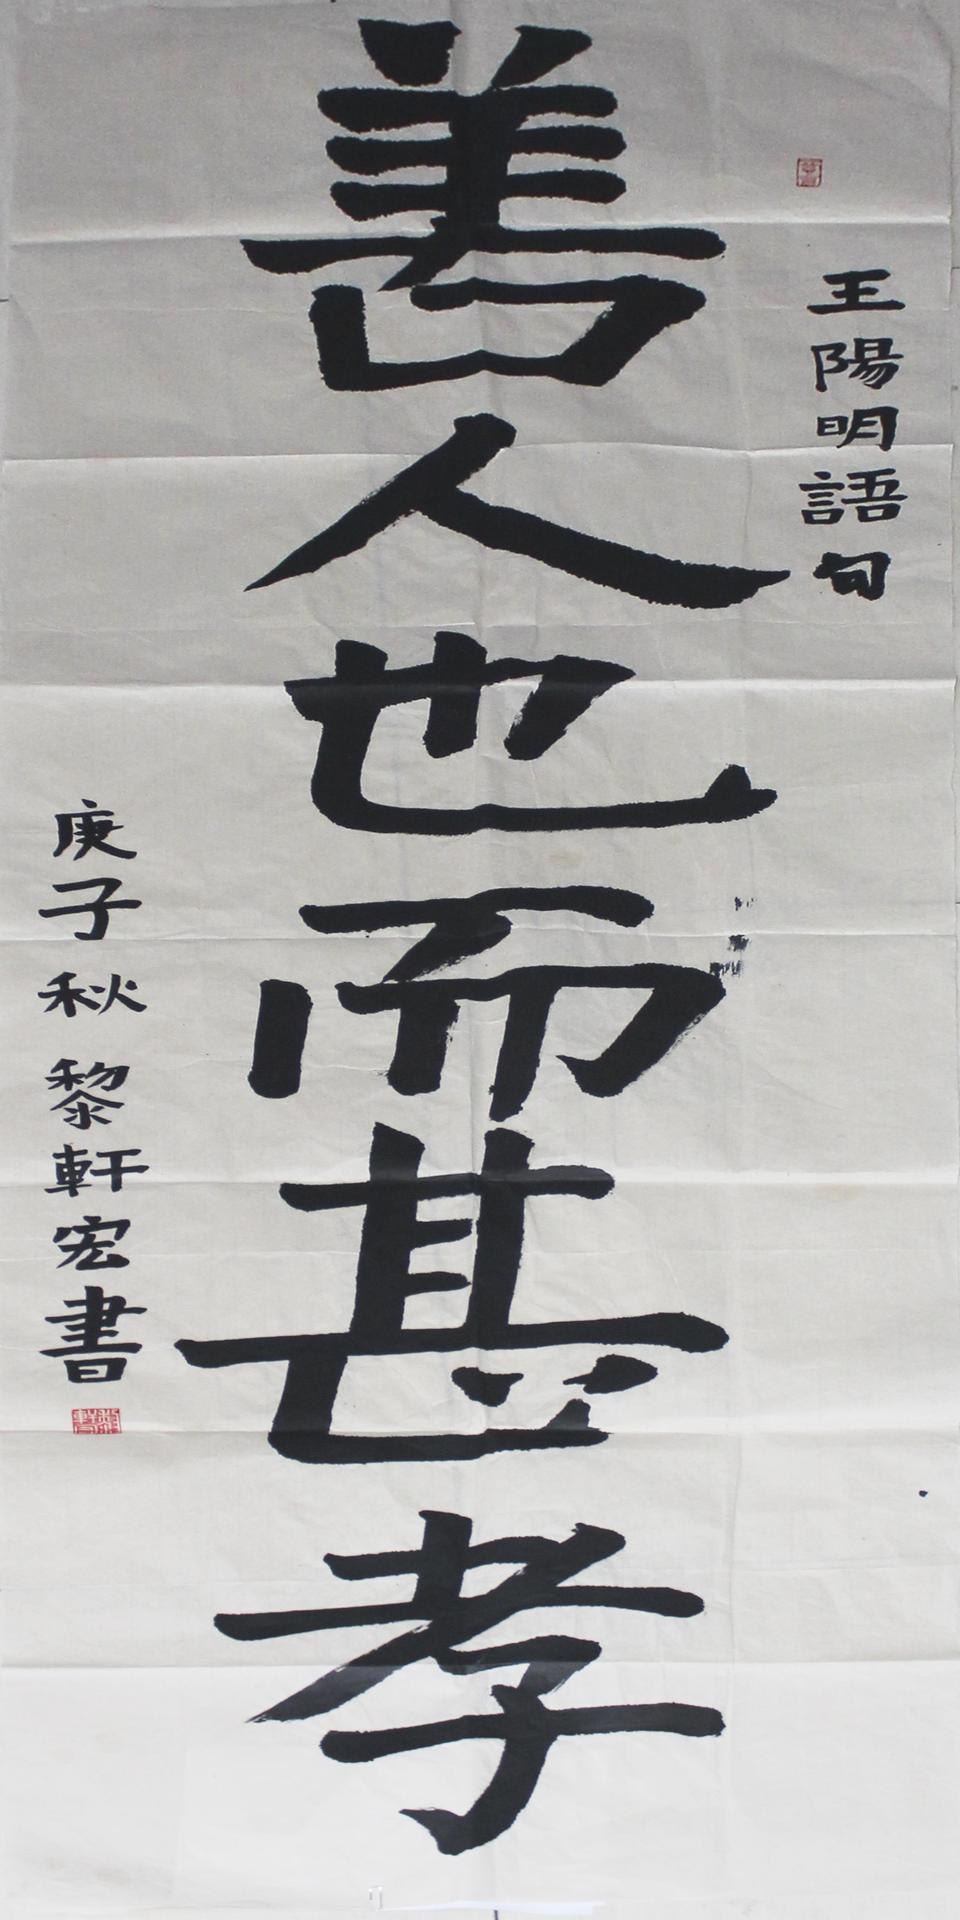 王陽明語句
善人也而甚孝
庚子秋 黎軒宏書